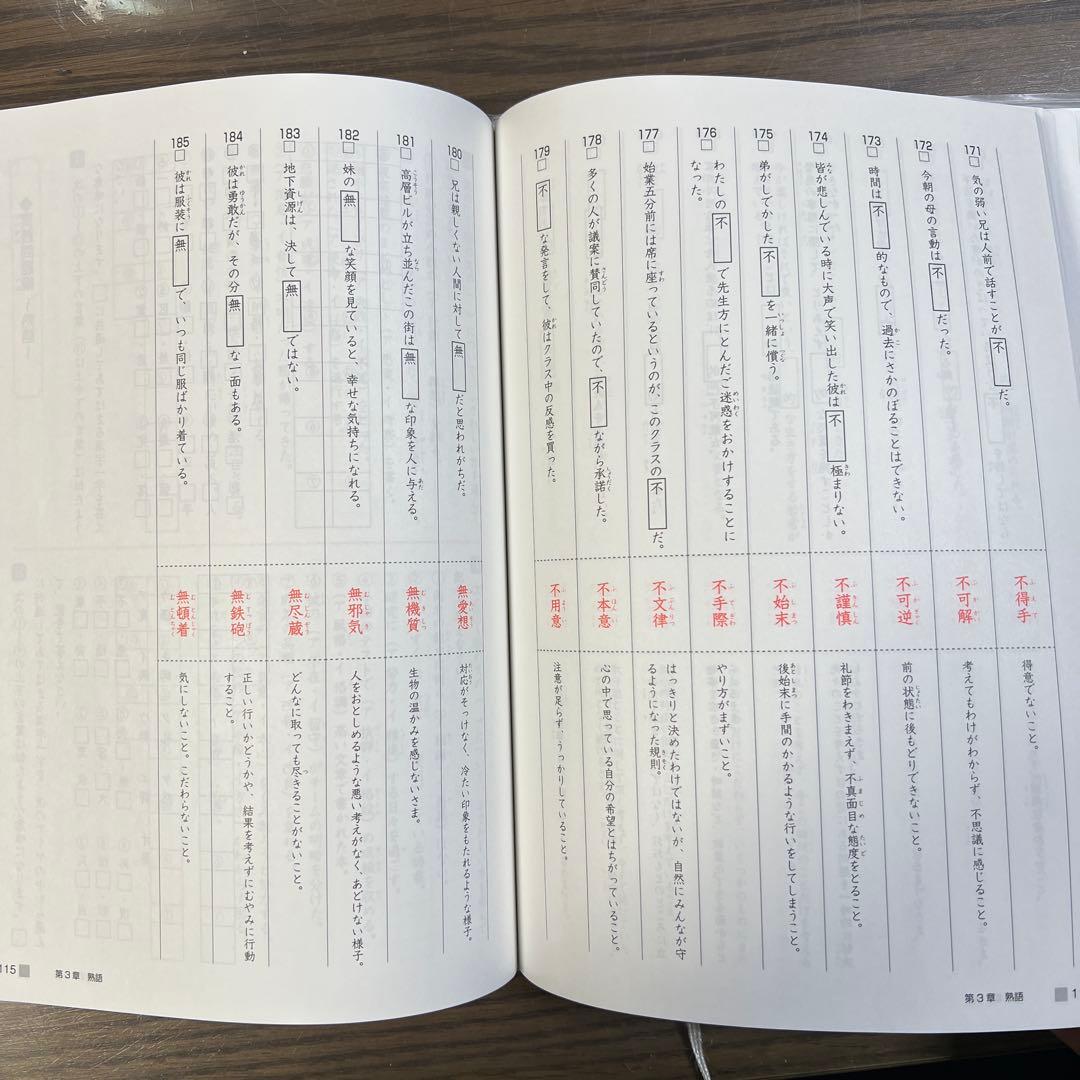 171 □ 気の弱い兄は人前で話すことが不　だ。
不得手
得意でないこと。
172 □ 今朝の母の言動は不　だった。
不可解
考えてもわけがわからず、不思議に感じること。
173 □ 時間は不　的なもので、過去にさかのぼることはできない。
不可逆
前の状態に後もどりできないこと。
174 □ 皆が悲しんでいる時に大声で笑い出した彼は不　極まりない。
不謹慎
礼節をわきまえず、不真面目な態度をとること。
175 □ 弟がしでかした不　を一緒に償う。
不始末
後始末に手間のかかるような行いをしてしまうこと。
176 □ わたしの不　で先生方にとんだご迷惑をおかけすることに
なった。
不手際
やり方がまずいこと。
177 □ 始業五分前には席に座っているというのが、このクラスの不　だ。
不文律
はっきりと決めたわけではないが、自然にみんなが守
るようになった規則。
178 □ 多くの人が議案に賛同していたので、不　ながら承諾した。
不本意
心の中で思っている自分の希望とはちがっていること。
179 □ 不　な発言をして、彼はクラス中の反感を買った。
不用意
注意が足らず、うっかりしていること。
第3章 熟語
180 □ 兄は親しくない人間に対して無　だと思われがちだ。
無愛想
対応がそっけなく、冷たい印象をもたれるような様子。
181 □ 高層ビルが立ち並んだこの街は無　な印象を人に与える。
無機質
生物の温かみを感じないさま。
182 □ 妹の無　な笑顔を見ていると、幸せな気持ちになれる。
無邪気
人をおとしめるような悪い考えがなく、あどけない様子。
183 □ 地下資源は、決して無　ではない。
無尽蔵
どんなに取っても尽きることがないこと。
184 □ 彼は勇敢だが、その分無　な一面もある。
無鉄砲
正しい行いかどうかや、結果を考えずにむやみに行動
すること。
185 □ 彼は服装に無　で、いつも同じ服ばかり着ている。
無頓着
気にしないこと。こだわらないこと。
115 第3章 熟語